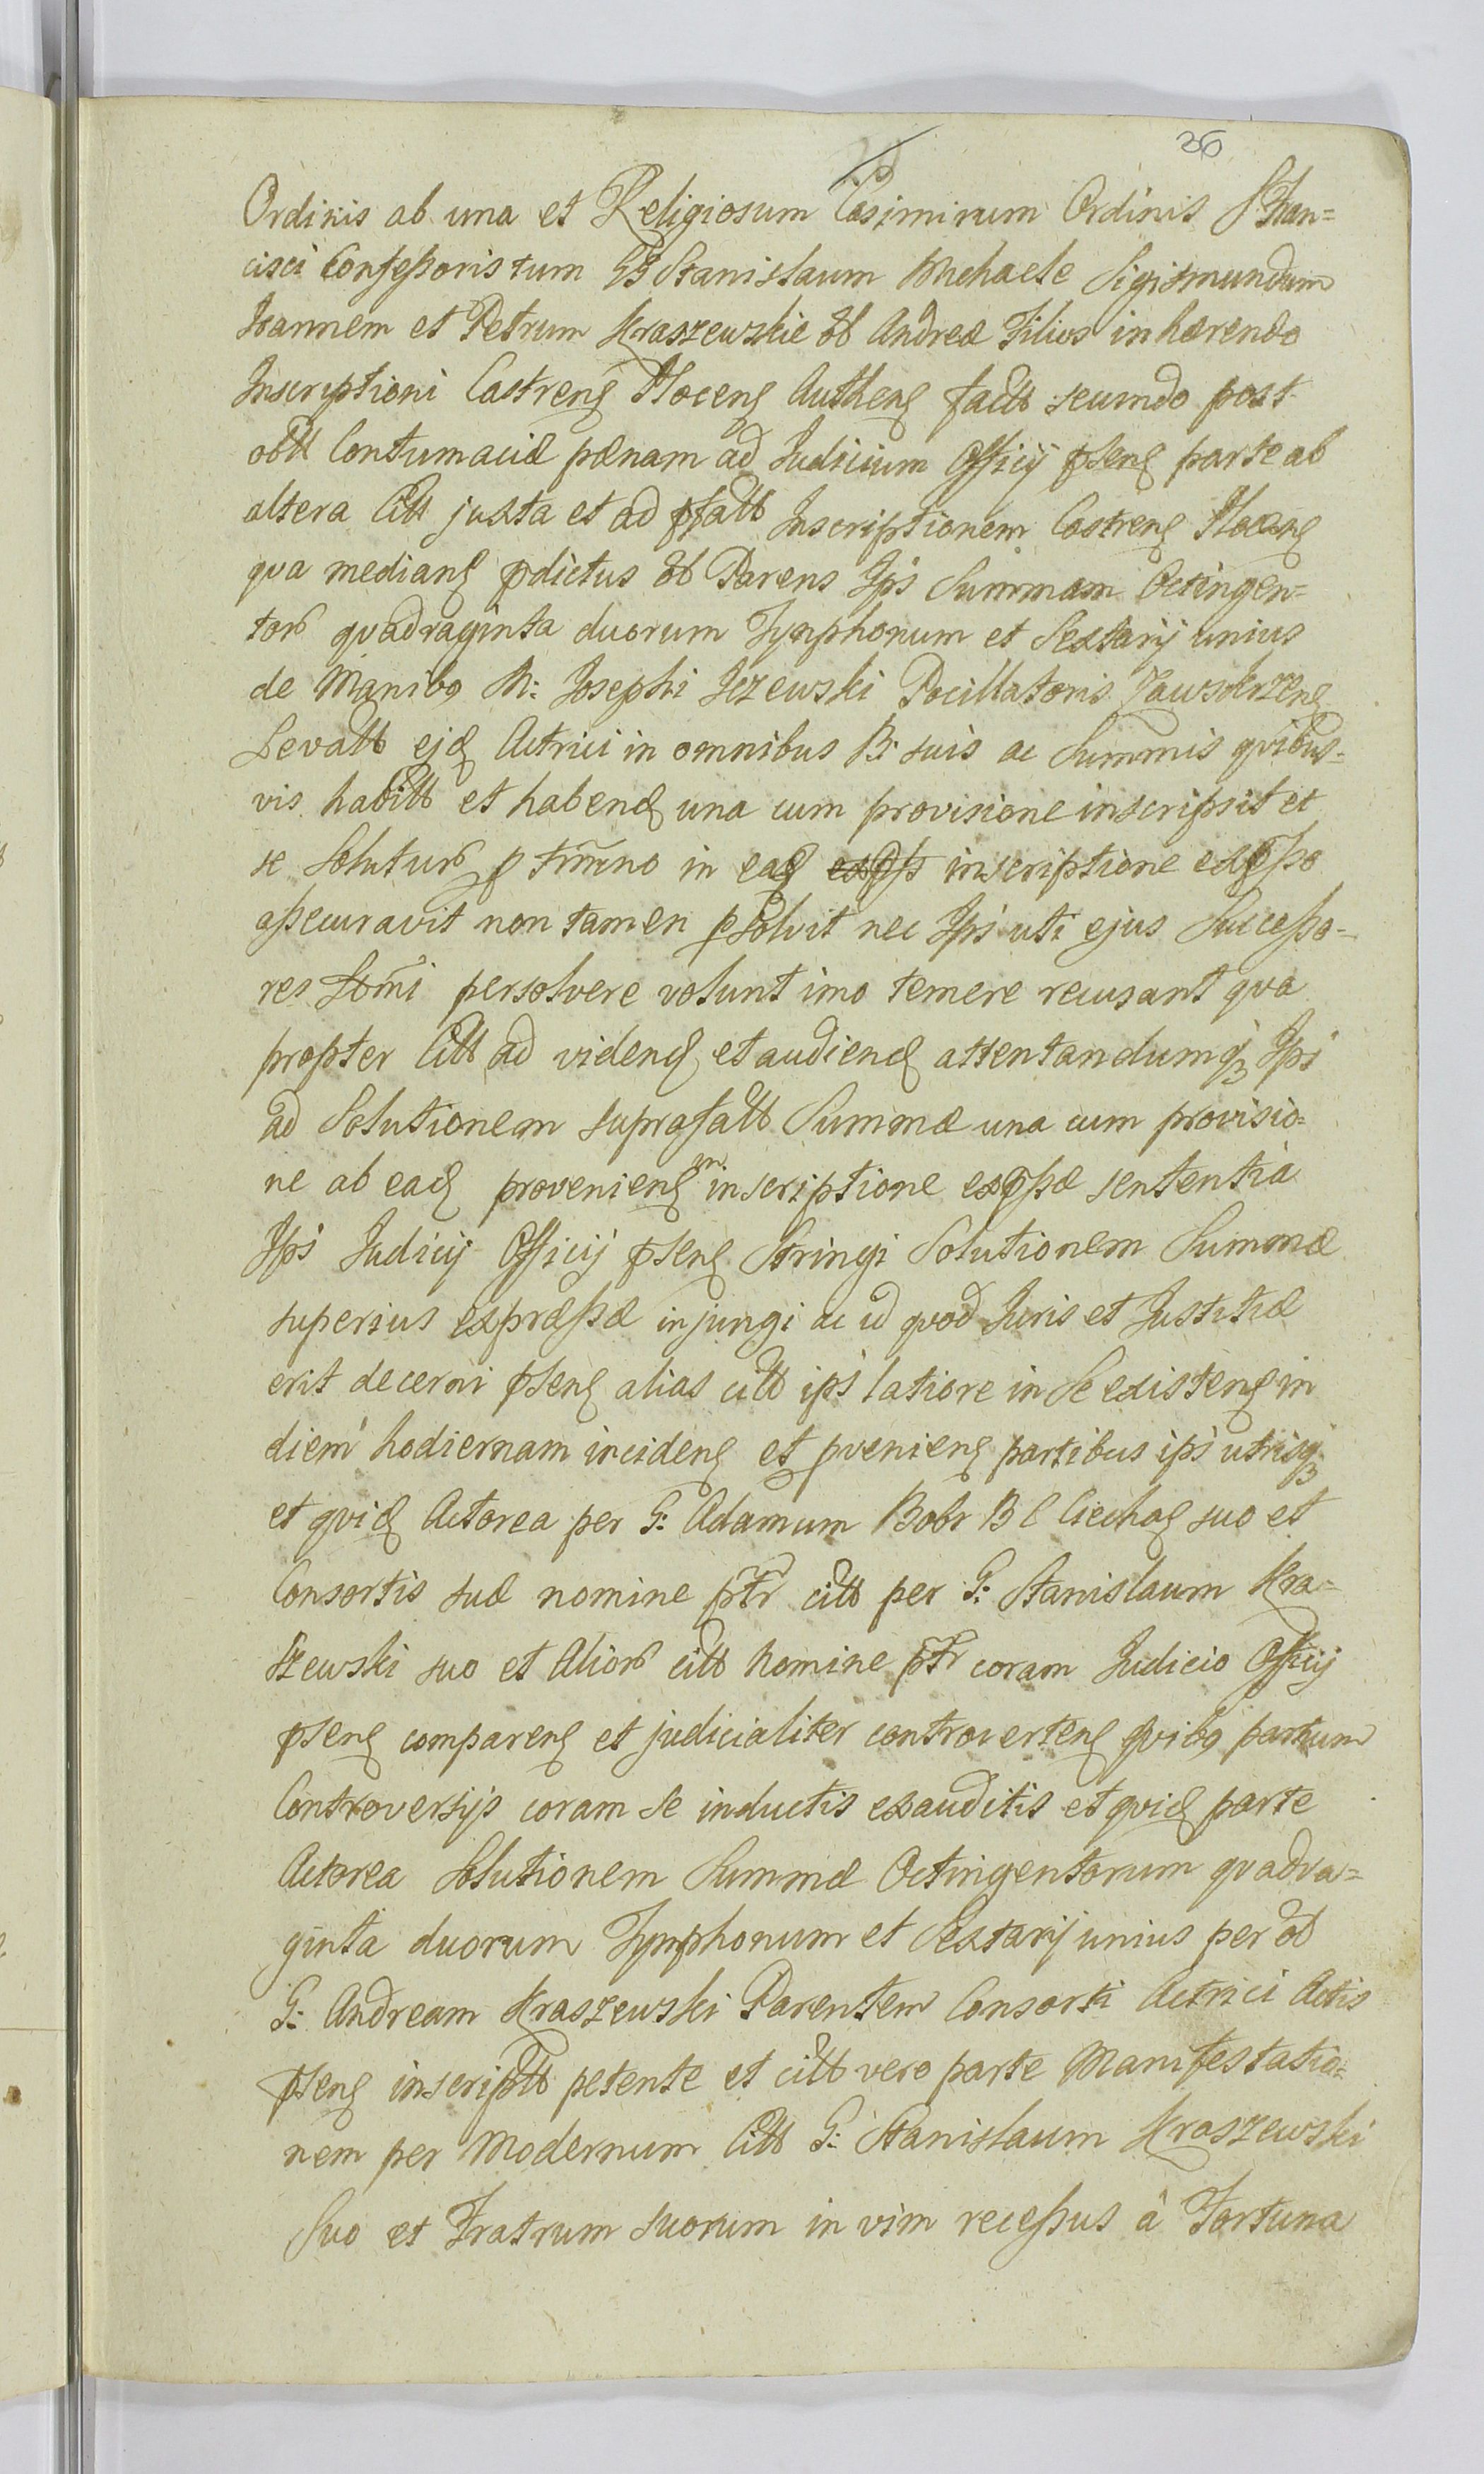 26
Ordinis ab una et Religiosum Casimirum Ordinis S Fran=
cisci Confeßoris tum GG Stanislaum Michaele Sigismundum
Joannem et Petrum Kraszewskie ol Andreæ Filios inhærendo
Inscriptioni Castren Nocen Authen factt secundo post
obtt Contumaciæ pænam ad Judicium Officij pñsen parte ab
altera Citt juxta et ad pfatt Inscriptionem Castren Nocen
qva median pdictus ol Parens Ips Summam Octingen=
tor qvadraginta duorum Tynphonum et Sextarij unius
de Manibq M: Josephi Jezewski Pocillatoris Zawskrzen
Levatt ejd Actrici in omnibus B: suis ac Summis qvibus-
vis habitt et habend una cum provisione inscripsit et
se Solutur p trmno in ead inscriptione expßo
aßecuravit non tamen psolvit nec Ips uti ejus Succeßo-
res persolvere volunt imo temere recusant qva
propter Citt ad videnđ et audienđ attentandumq Ips
ad Solutionem suprafatt Summæ una cum provisio=
ne ab eađ provenien in inscriptione expßæ sententia
Ips Judicij Officij pñsen Stringi Solutionem Summæ
superius expræßæ injungi ac id qvod Juris et Justitiæ
erit decerni pñsen alias citt ips latiore in Se existen in
diem hodiernam inciden et pvenien partibus ips utrisq
et qvid Actorea per G: Adamum Bobr B C Ciechan suo et
Consortis suæ nomine ptr citt per G: Stanislaum Kra=
szewski suo et Alior citt Nomine ptr coram Judicio Officij
pñsen comparen et judicialiter controverten qvibq partium
Controversijs coram Se inductis exauditis et qvid parte
Actorea Solutionem Summæ Octingentorum qvadra=
ginta duorum Tynphonum et Sextarij unius per ol
G: Andream Kraszewski Parentem Consorti Actrici Actis
pñsen inscriptt petente et citt vero parte Manifestatio=
nem per Modernum Citt G: Stanislaum Kraszewski
Suo et Fratrum suorum in vim receßus â Fortuna